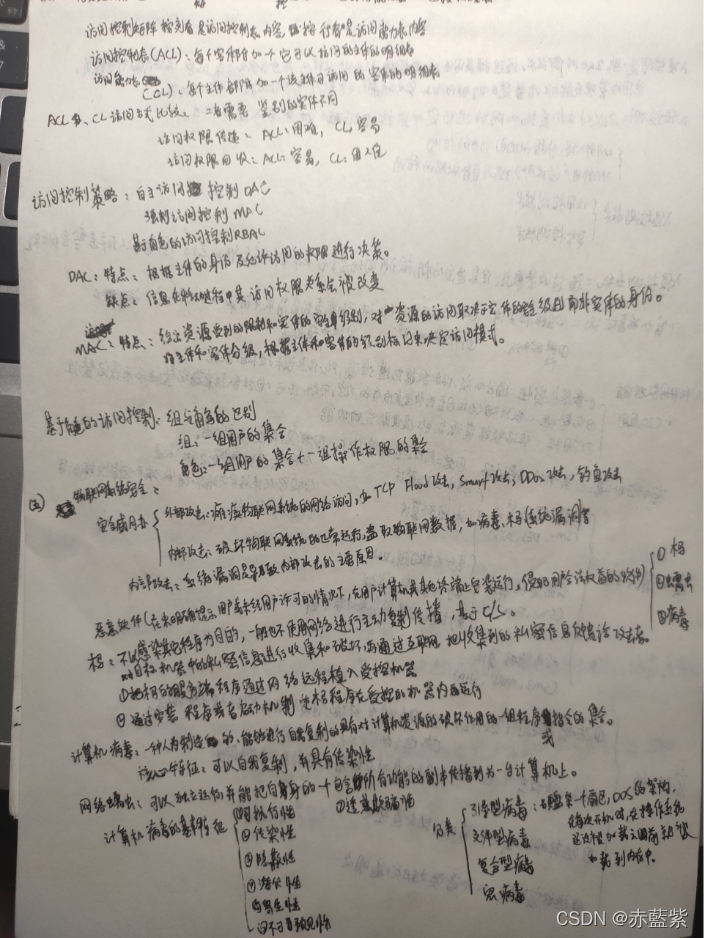 访问控制矩阵 按列看是访问控制表内容,按行看是访问能力表内容
访问控制表(ACL):每个客体附加一个它可以访问的主体的明细表
访问能力表
(CL):每个主体都附加一个该主体可访问的客体的明细表
ACL、CL访问方式比较:二者需要鉴别的实体不同
访问权限传递:ACL:困难,CL:容易
访问权限回收:ACL:容易,CL:困难
访问控制策略:自主访问控制DAC
强制访问控制MAC
基于角色的访问控制RBAC
DAC:特点:根据主体的身份及允许访问的权限进行决策。
缺点:信息在移动过程中其访问权限关系会被改变
MAC:特点:给出资源受到的限制和实体的授权,对资源的访问取决于实体的级别而非实体的身份。
将主体和客体分级,根据主体和客体的级别标记来决定访问模式。
基于角色的访问控制:组与角色的区别
组:一组用户的集合
角色:一组用户的集合+一组操作权限的集合
物联网系统安全:
安全威胁
外部攻击:物联网系统的网络访问,如TCP Flood攻击,Smurf攻击,DDoS攻击,钓鱼攻击
内部攻击:破坏物联网系统的正常运行,盗取物联网数据,如病毒、木马、系统漏洞等
内部攻击:系统漏洞是导致内部攻击的主要原因。
恶意软件(在未明确提示用户或未经用户许可的情况下,在用户计算机或其他终端上安装运行,侵犯用户合法权益的软件)
①木马
②蠕虫
③病毒
木马:不以感染其它程序为目的,一般也不使用网络进行主动复制传播,基于C/S。
对目标机器中的私密信息进行收集和破坏,再通过互联网,把收集到的私密信息反馈给攻击者。
①把木马的服务端程序通过网络远程植入受控机器
②通过安装程序或者启动机制使木马程序在受控的机器内运行
计算机病毒:一种人为制造的,能够进行自我复制的具有对计算机资源的破坏作用的一组程序或指令的集合。
核心特征:可以自我复制,并具有传染性
网络蠕虫:可以独立运行,并能把自身的一个包含所有功能的副本传播到另一台计算机上。
计算机病毒的基本特征
①可执行性
②传染性
④潜伏性
⑥不可预见性
⑦
分类
引导型病毒
文件型病毒
复合型病毒
宏病毒
CSDN @赤藍紫